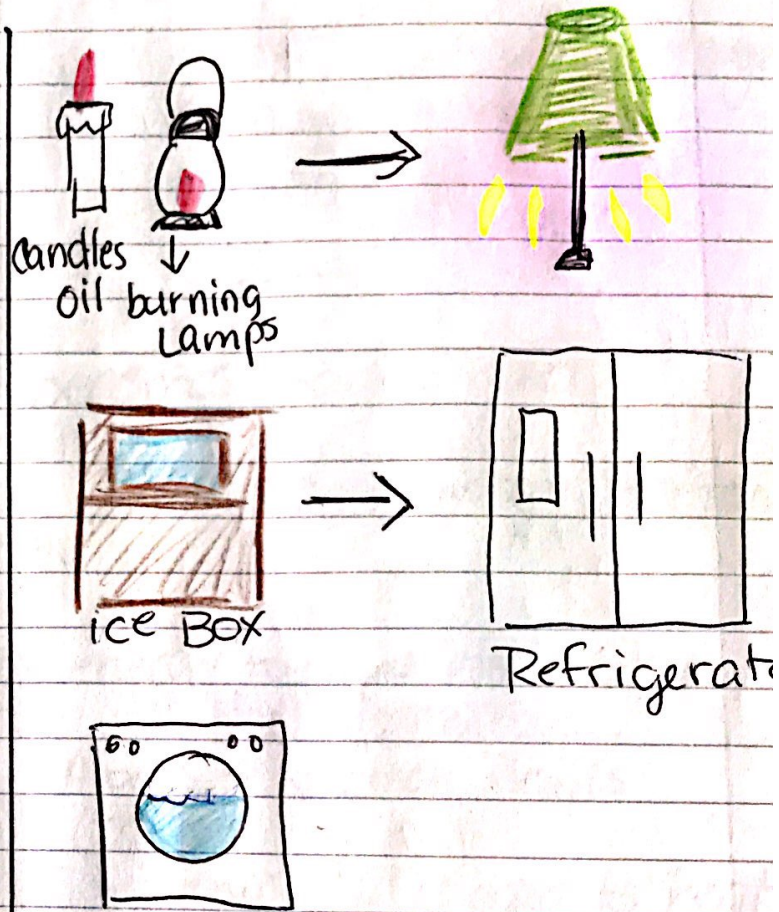 candles
oil burning
Lamps
ice Box
Refrigerat